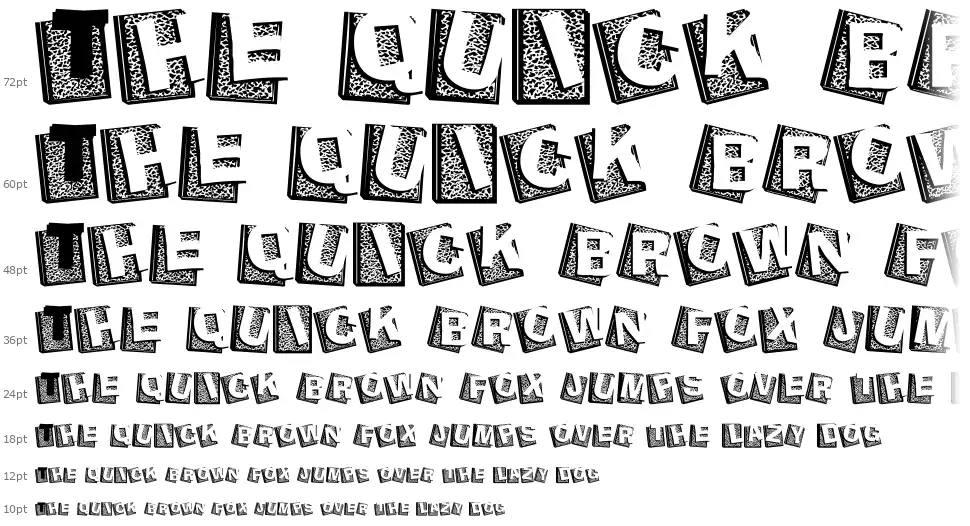 72pt THE QUICK BR
60pt THE QUICK BROW
48pt THE QUICK BROWN F
36pt THE QUICK BROWN FOX JUM
24pt THE QUICK BROWN FOX JUMPS OVER THE
18pt THE QUICK BROWN FOX JUMPS OVER THE LAZY DOG
12pt THE QUICK BROWN FOX JUMPS OVER THE LAZY DOG
10pt THE QUICK BROWN FOX JUMPS OVER THE LAZY DOG